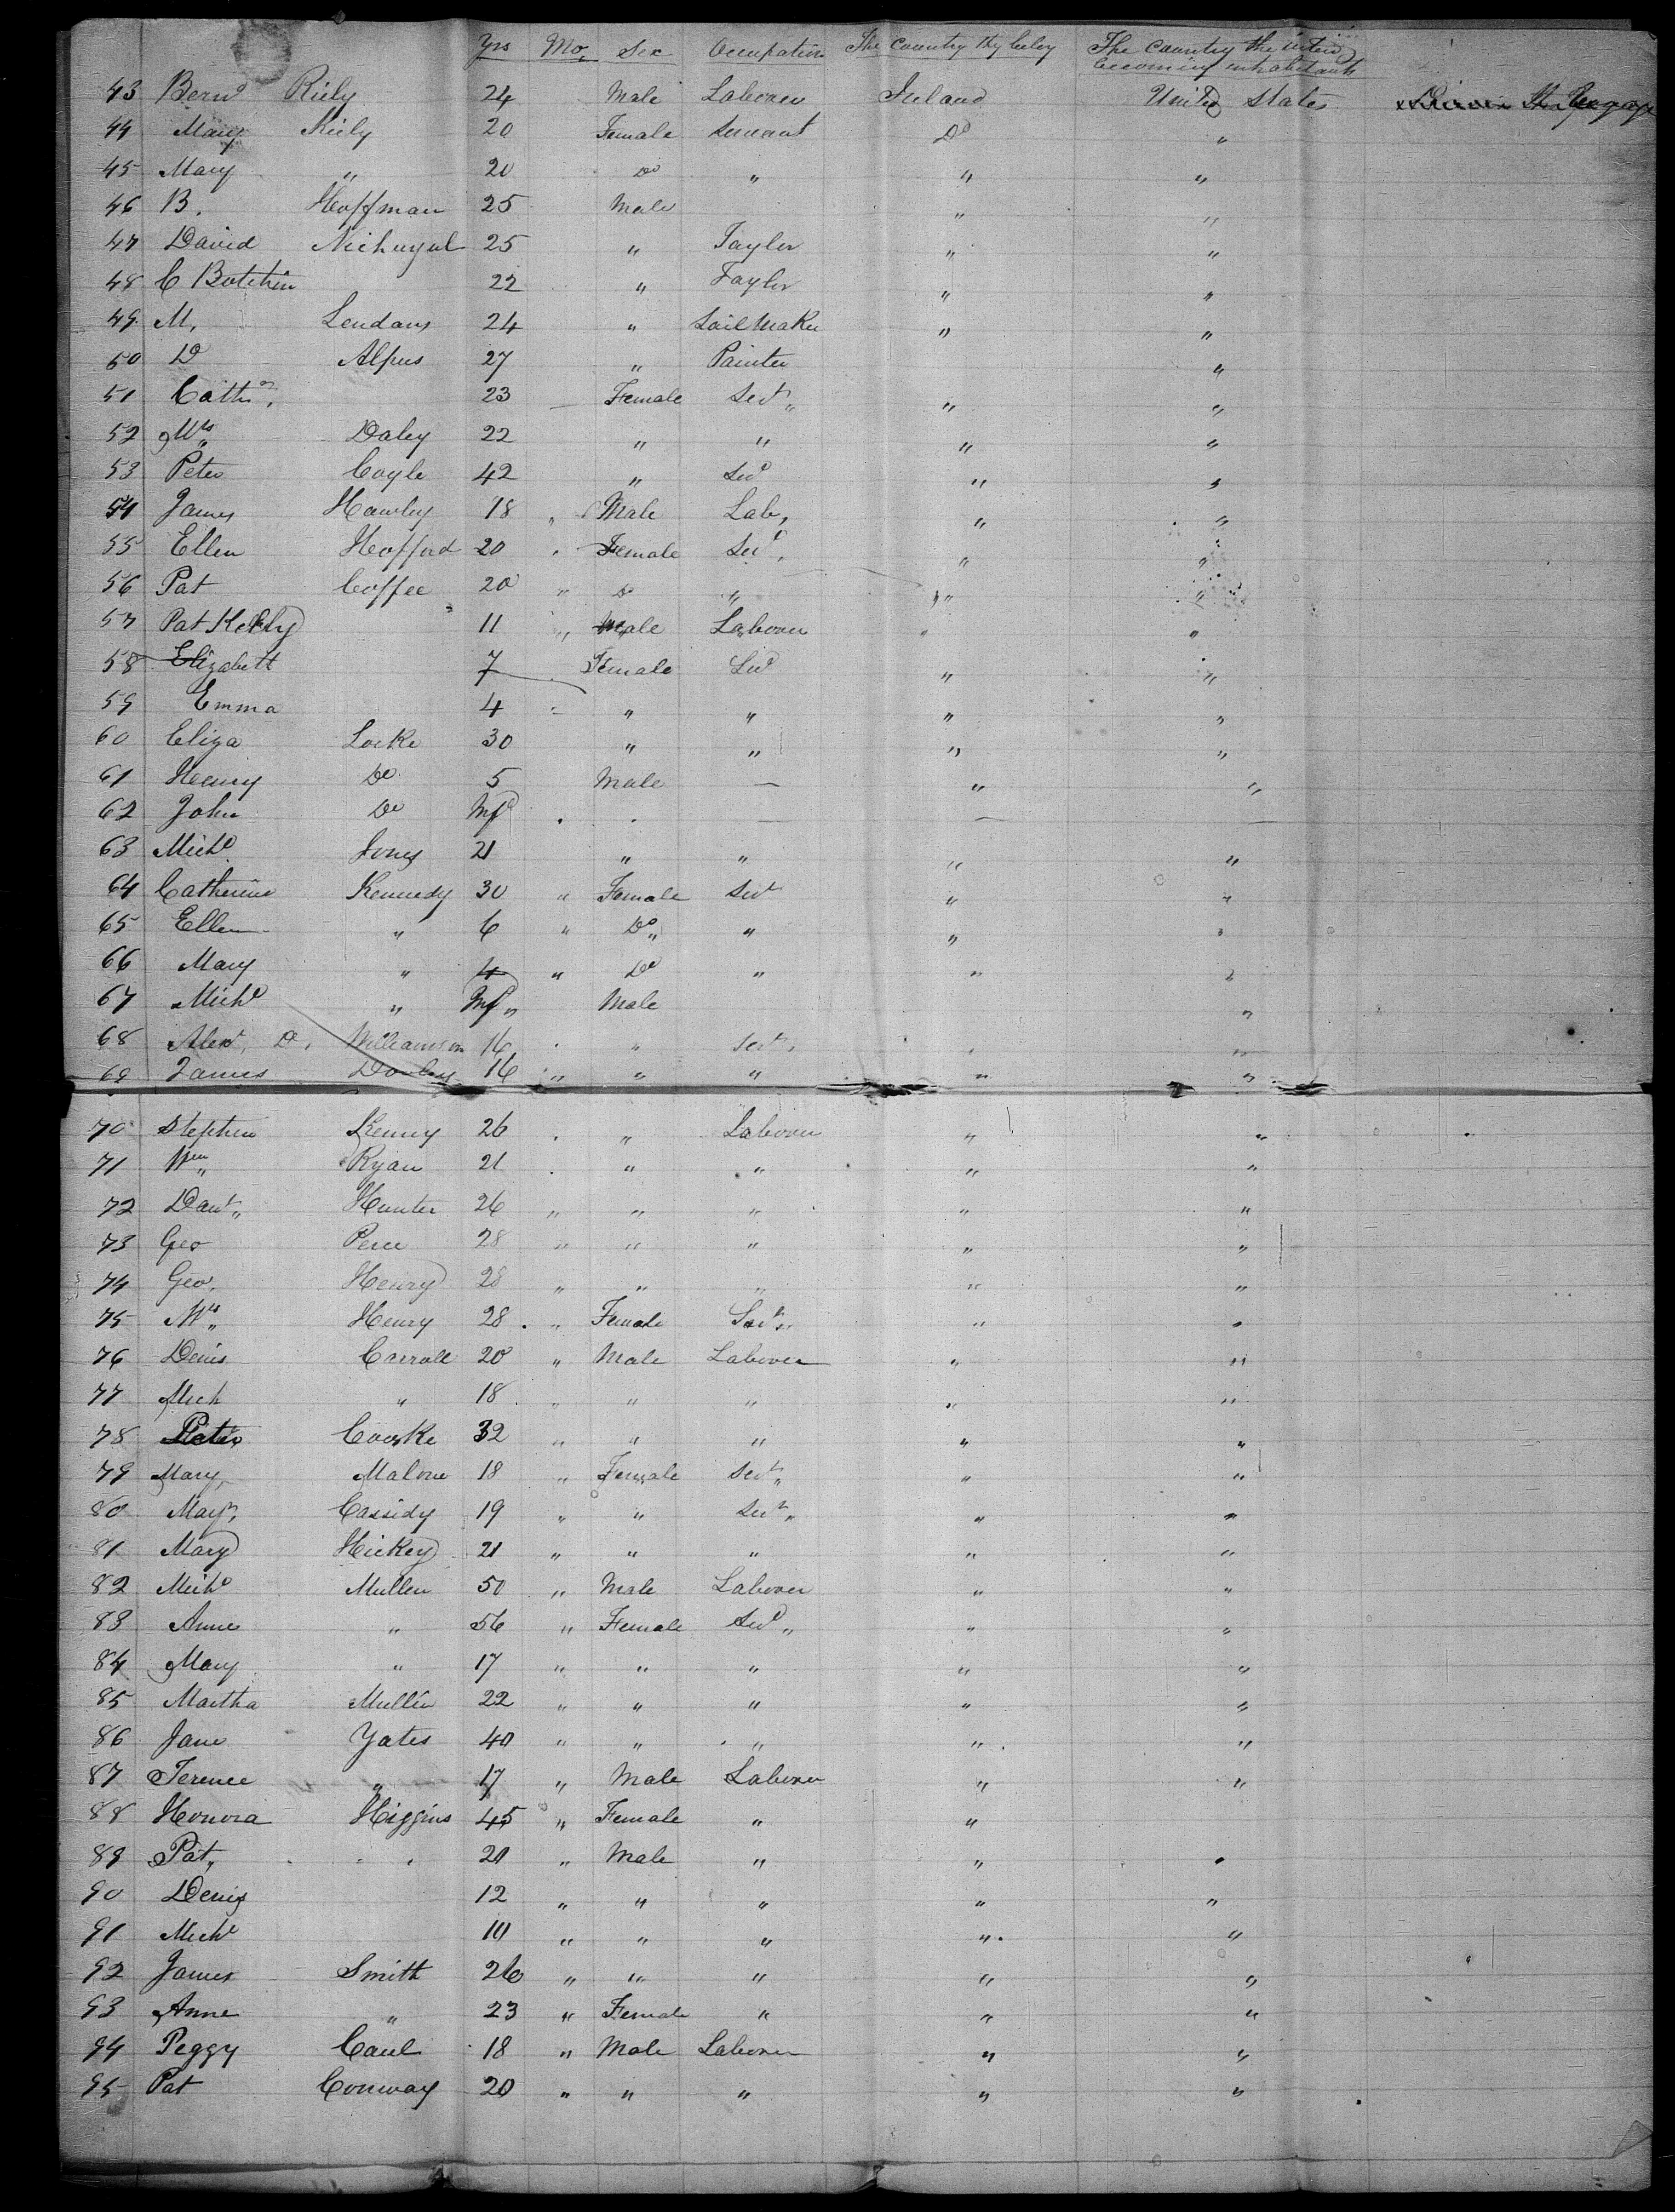 Yrs Mo, Sex Occupation The Country they belong The Country they intend becoming inhabitants
43 Bernd Riely 24 Male Laborer Ireland United States
44 Mary Riely 20 Female Servant Do "
45 Mary " 20 Do " " "
46 B. Hoffman 25 Male " "
47 David 25 " Taylor " "
48 C Botchin 22 " Taylor " "
49 M, Lendans 24 " Sail Maker " "
50 D Alpus 27 " Painter "
51 Cathn, 23 Female Servt " " "
52 Mrs " Daley 22 " " " "
53 Peter Coyle 42 " Sert " "
54 James Hawley 18 " Male Lab, " "
55 Ellen Hofford 20 Female Sert, " "
56 Pat Coffee 20 " Do " " "
57 Pat Kelly 11 " Male Laborer " "
58 Elizabett 7 Female Sert " "
59 Emma 4 " " " "
60 Eliza Locke 30 " " " "
61 Henry Do 5 Male — " "
62 John Do Inft — — —
63 Michl Jones 21 " " " "
64 Catherine Kennedy 30 " Female Sert " "
65 Ellen " 6 " Do " " " "
66 Mary " 4 " Do " " "
67 Michl " Inf " Male "
68 Alexr, D. Williamson 16 " Sert, " "
69 James Dooley 16 " " " " "
70 Stephen Kenny 26 " Laborer " "
71 Wm " Ryan 21 " " " "
72 Danl " Hunter 26 " " " " "
73 Geo Perce 28 " " " " "
74 Geo, Henry 28 " " " " "
75 Mrs " Henry 28 " Female Sert " " "
76 Denis Carroll 20 " Male Laborer " "
77 Mich " 18 " " " " "
78 Peter Cooske 32 " " " " "
79 Mary, Malone 18 " Female Sert " " "
80 Mary, Cassidy 19 " " Sert " " "
81 Mary Hickey 21 " " " " "
82 Michl Mullen 50 " Male Laborer " "
83 Anne " 56 " Female Sert " " "
84 Mary " 17 " " " " "
85 Martha Mullin 22 " " " " "
86 Jane Yates 40 " " " " "
87 Terence " 17 " Male Laborer " "
88 Honora Higgins 45 " Female " "
89 Pat, " 21 " Male " " "
90 Denis 12 " " " " "
91 Michl 10 " " " " "
92 James Smith 26 " " " " "
93 Anne " 23 " Female " " "
94 Peggy Caul 18 " Male Laborer " "
95 Pat Conway 20 " " " " "